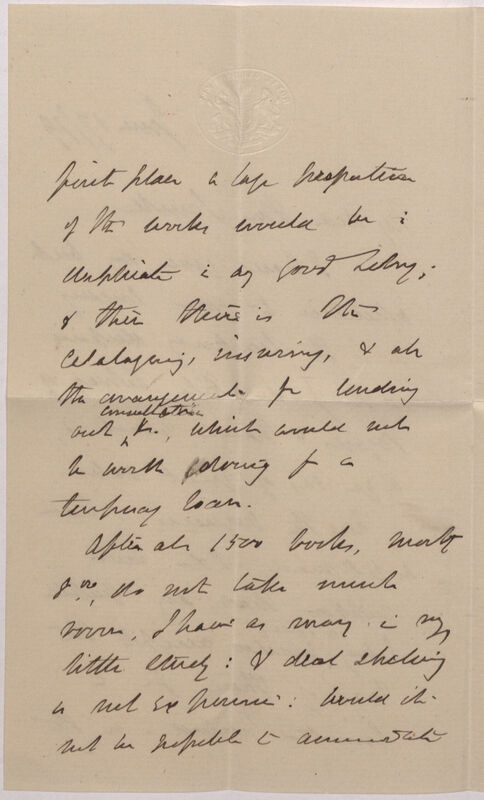 first place a large proportion
of the works would be in
duplicate in any good Library;
& then there is the
cataloguing, insuring, & all
the arrangements for lending
consultation
out &c., which would not
be worth doing for a
temporary loan.
After all 1500 books, mostly
8vo, do not take much
room, I have as many in my
little study: & deal shelving
is not expensive: would it
not be possible to accommodate